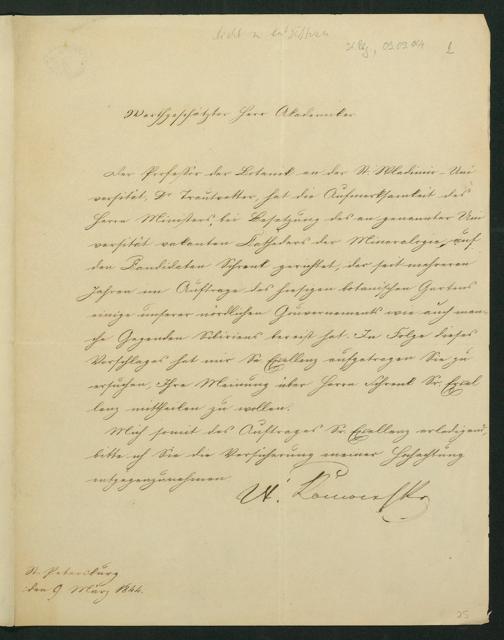 Werthgeschätzter Herr Akademiker
Der Professor der Botanik an der St. Wladimir-Uni
versität, Dr Trautvetter, hat die Aufmerksamkeit des
Herrn Ministers, bei Besetzung des an genannter Uni
versität vakanten Katheders der Mineralogie, auf
den Kandidaten Schrenk gerichtet, der seit mehreren
Jahren im Auftrage des hiesigen botanischen Gartens
einige unserer nördlichen Gouvernements wie auch man-
che Gegenden Sibiriens bereist hat. In Folge dieses
Vorschlages hat mir Se Excellenz aufgetragen Sie zu
ersuchen, Ihre Meinung über Herrn Schrenk Sr. Excel
lenz mittheilen zu wollen.
Mich somit des Auftrages Sr. Excellenz erledigend,
bitte ich Sie die Versicherung meiner Hochachtung
entgegenzunehmen
St. Petersburg
den 9 März 1844.
1
25